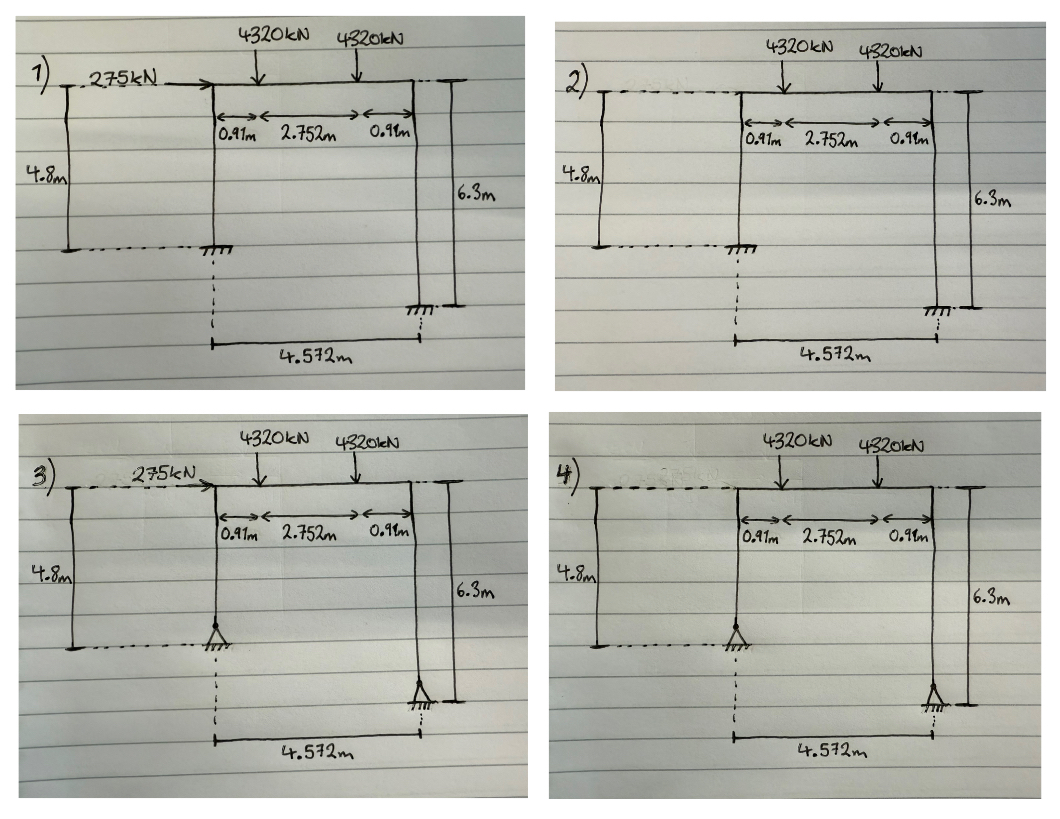 1)
4320kN 4320kN
275kN
0.91m 2.752m 0.91m
4.8m
6.3m
4.572m
2)
4320kN 4320kN
0.91m 2.752m 0.91m
4.8m
6.3m
4.572m
3)
4320kN 4320kN
275kN
0.91m 2.752m 0.91m
4.8m
6.3m
4.572m
4)
4320kN 4320kN
0.91m 2.752m 0.91m
4.8m
6.3m
4.572m